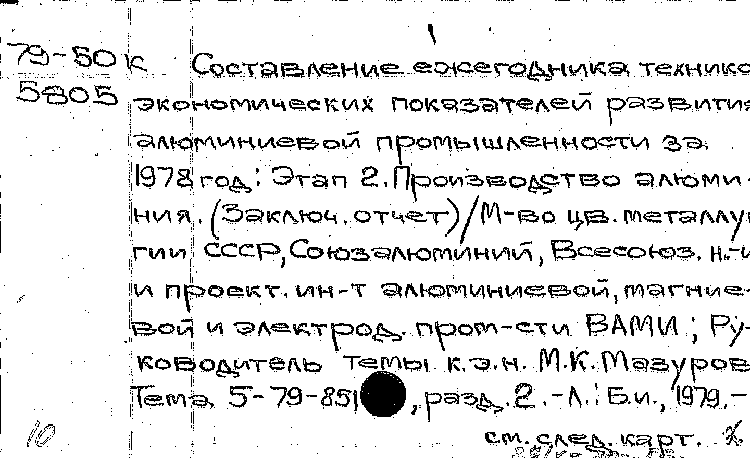 79-50к Составление ежегодника технико
5805 экономических показателей развития
алюминиевой промышленности за
1978 год: Этап 2. Производство алюми-
ния. (Заключ. отчет) / М-во цв. металлу
гии СССР, Союзалюминий, Всесоюз. н.-и
и проект. ин-т алюминиевой, магние-
вой и электрод. пром-сти ВАМИ; Ру-
ководитель темы к.э.н. М.К. Мазуров
Тема 5-79-851, разд. 2. - Л.: Б.и., 1979. -
10 см. след. карт.